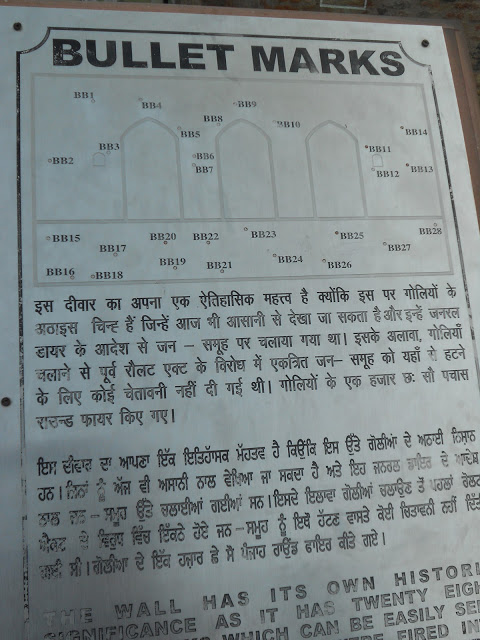 BULLET MARKS
BB1
BB4
BB9
BB8
BB10
BB5
BB14
BB3
BB11
BB2
BB6
BB7
BB13
BB12
BB15
BB20
BB22
BB23
BB25
BB28
BB17
BB27
BB16
BB18
BB19
BB21
BB24
BB26
इस दीवार का अपना एक ऐतिहासिक महत्त्व है क्योंकि इस पर गोलियों के
अठाइस चिन्ह हैं जिन्हें आज भी आसानी से देखा जा सकता है और इन्हें जनरल
डायर के आदेश से जन – समूह पर चलाया गया था। इसके अलावा, गोलियाँ
चलाने से पूर्व रौलट एक्ट के विरोध में एकत्रित जन– समूह को यहाँ से हटने
के लिए कोई चेतावनी नहीं दी गई थी। गोलियों के एक हजार छः सौ पचास
राउन्ड फायर किए गए।
ਇਸ ਦੀਵਾਰ ਦਾ ਆਪਣਾ ਇੱਕ ਇਤਿਹਾਸਕ ਮੱਹਤਵ ਹੈ ਕਿਉਂਕਿ ਇਸ ਉੱਤੇ ਗੋਲੀਆਂ ਦੇ ਅਠਾਈ ਨਿਸ਼ਾਨ
ਹਨ। ਜਿਨਾਂ ਨੂੰ ਅੱਜ ਵੀ ਅਸਾਨੀ ਨਾਲ ਵੇਖਿਆ ਜਾ ਸਕਦਾ ਹੈ ਅਤੇ ਇਹ ਜਨਰਲ ਡਾਇਰ ਦੇ ਆਦੇਸ਼
ਨਾਲ ਜਨ – ਸਮੂਹ ਉੱਤੇ ਚਲਾਈਆਂ ਗਈਆਂ ਸਨ। ਇਸਦੇ ਇਲਾਵਾ ਗੋਲੀਆਂ ਚਲਾਉਣ ਤੋਂ ਪਹਲਾਂ ਰੋਲਟ
ਐਕਟ ਦੇ ਵਿਰੁਧ ਵਿੱਚ ਇਕੱਠੇ ਹੋਏ ਜਨ – ਸਮੂਹ ਨੂੰ ਇਥੋਂ ਹੱਟਣ ਵਾਸਤੇ ਕੋਈ ਚਿਤਾਵਨੀ ਨਹੀਂ ਦਿੱਤੀ
ਗਈ ਸੀ। ਗੋਲੀਆ ਦੇ ਇੱਕ ਹਜ਼ਾਰ ਛੇ ਸੌ ਪੰਜਾਹ ਰਾਊਂਡ ਫਾਇਰ ਕੀਤੇ ਗਏ।
THE WALL HAS ITS OWN HISTORI
SIGNIFICANCE AS IT HAS TWENTY EIGH
WHICH CAN BE EASILY SE
WERE FIRED INT